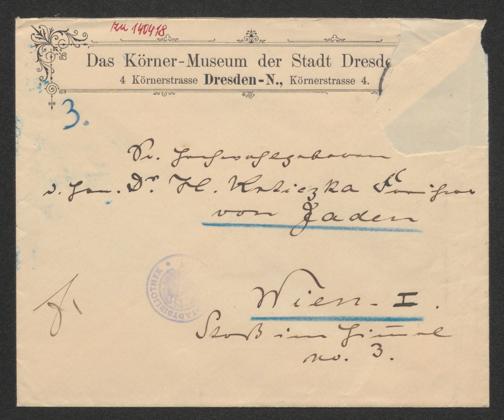 zu 140478
Das Körner-Museum der Stadt Dresde
4 Körnerstrasse Dresden-N., Körnerstrasse 4.
3.
Sr. Hochwohlgeboren
d. Hrn. Dr. H. Freiherr
von Jaden
STADTBIBLIOTHEK
Wien - I.
Stoß im Himmel
no. 3.